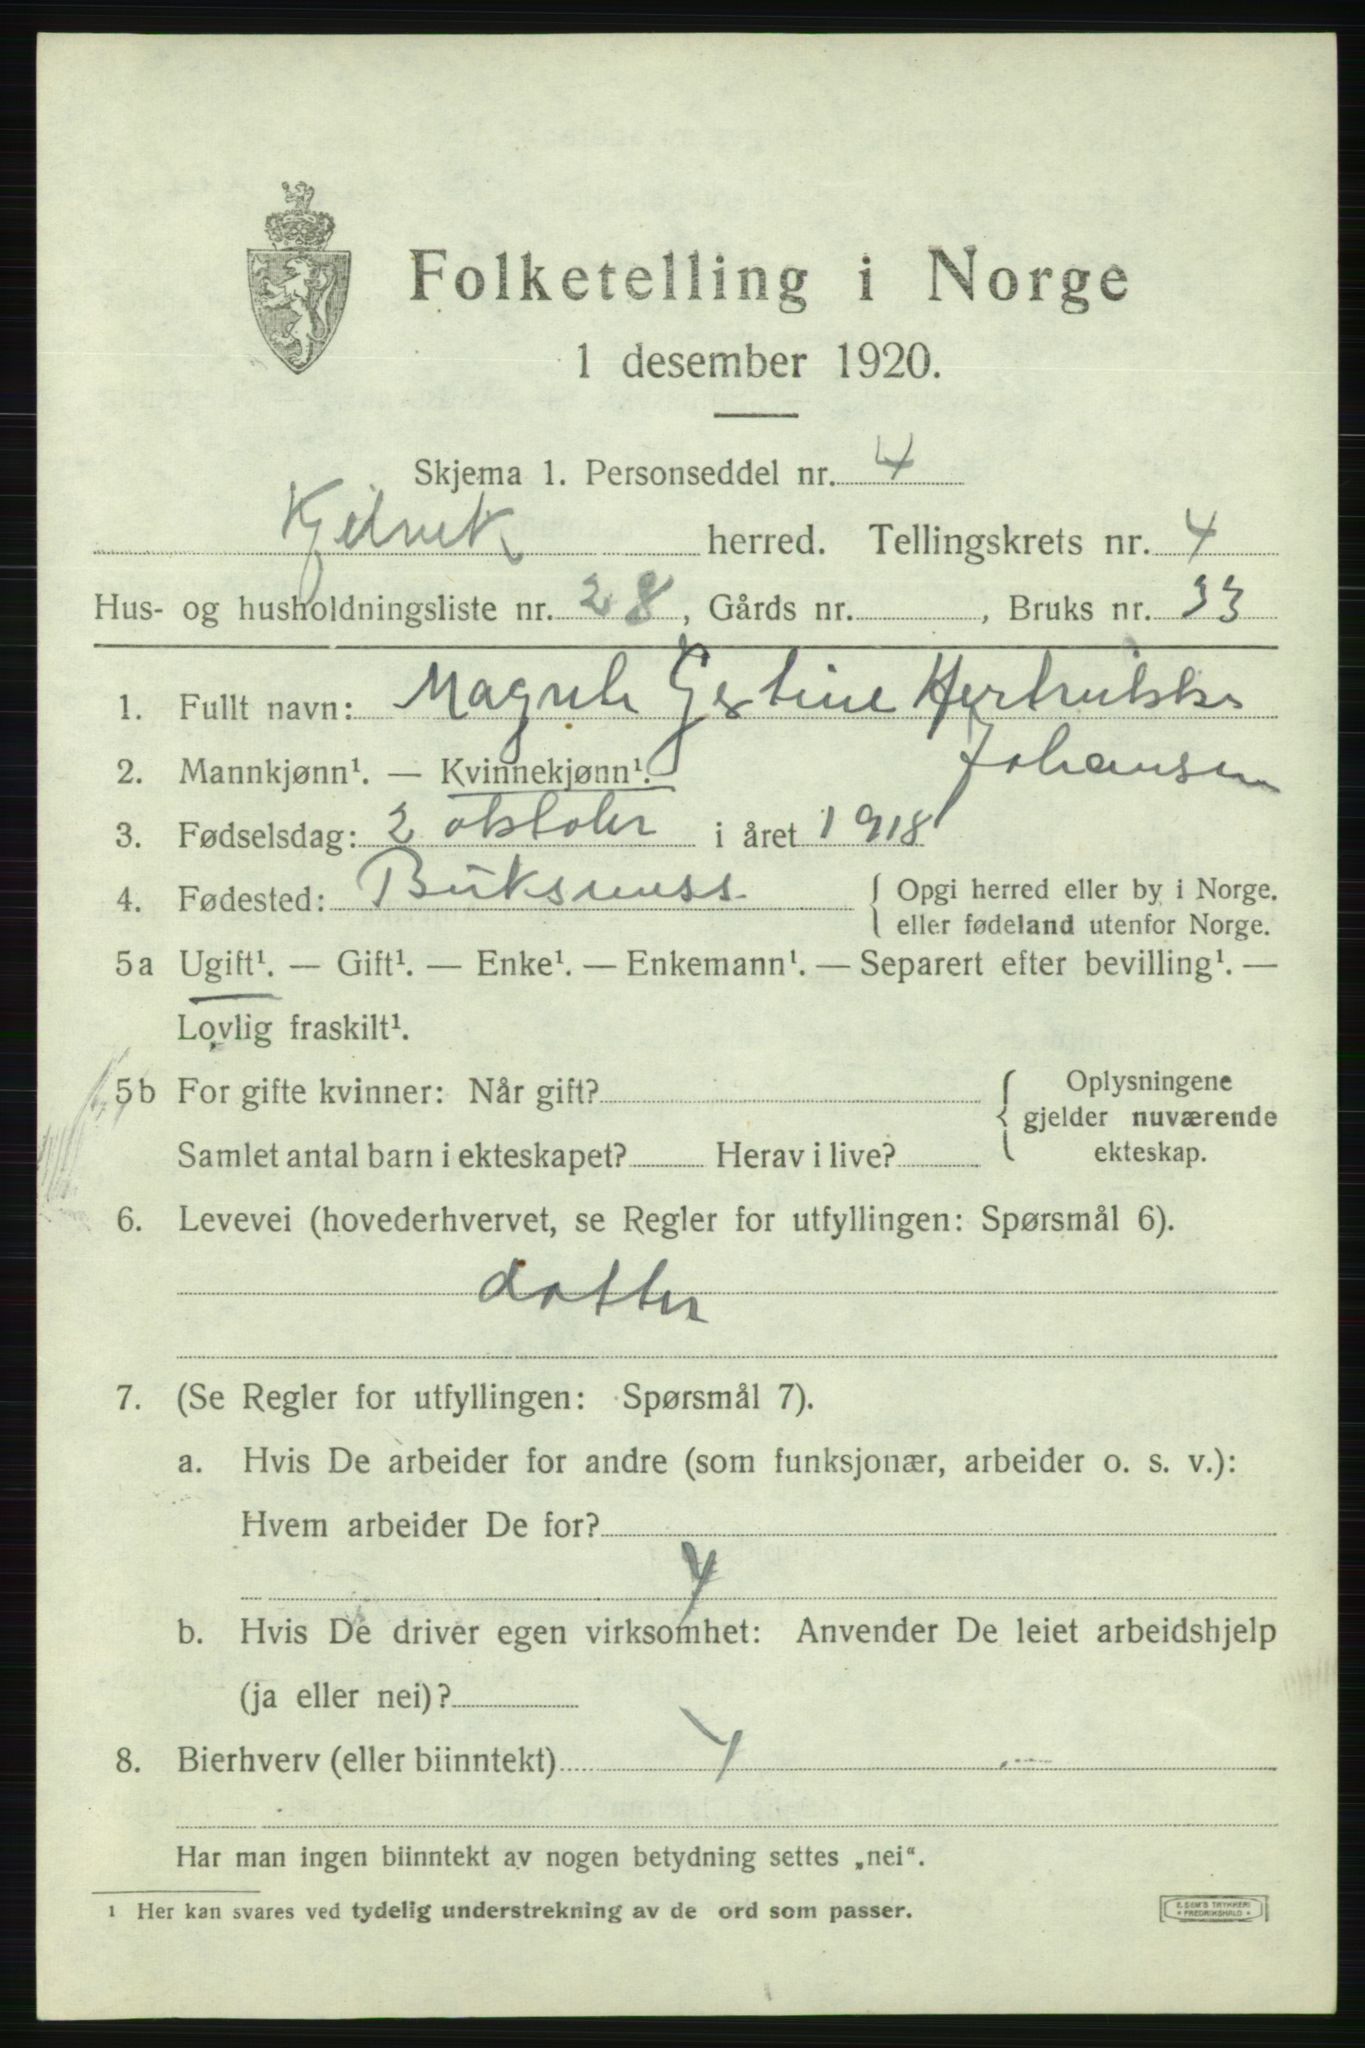 Folketelling i Norge
1 desember 1920.
Skjema 1. Personseddel nr. 4
herred. Tellingskrets nr. 4
Hus- og husholdningsliste nr. 28, Gårds nr. , Bruks nr. 33
1. Fullt navn:
Johansen
2. Mannkjønn¹. — Kvinnekjønn¹.
3. Fødselsdag: 2 oktober i året 1918
4. Fødested: { Opgi herred eller by i Norge.
eller fødeland utenfor Norge.
5a Ugift¹. — Gift¹. — Enke¹. — Enkemann¹. — Separert efter bevilling¹. —
Lovlig fraskilt¹.
5b For gifte kvinner: Når gift? { Oplysningene
gjelder nuværende
Samlet antal barn i ekteskapet? Herav i live? ekteskap.
6. Levevei (hovederhvervet, se Regler for utfyllingen: Spørsmål 6).
datter
7. (Se Regler for utfyllingen: Spørsmål 7).
a. Hvis De arbeider for andre (som funksjonær, arbeider o. s. v.):
Hvem arbeider De for?
b. Hvis De driver egen virksomhet: Anvender De leiet arbeidshjelp
(ja eller nei)?
8. Bierhverv (eller biinntekt)
Har man ingen biinntekt av nogen betydning settes „nei“.
¹ Her kan svares ved tydelig understrekning av de ord som passer.
E. SEM'S TRYKKERI
• FREDRIKSHALD •